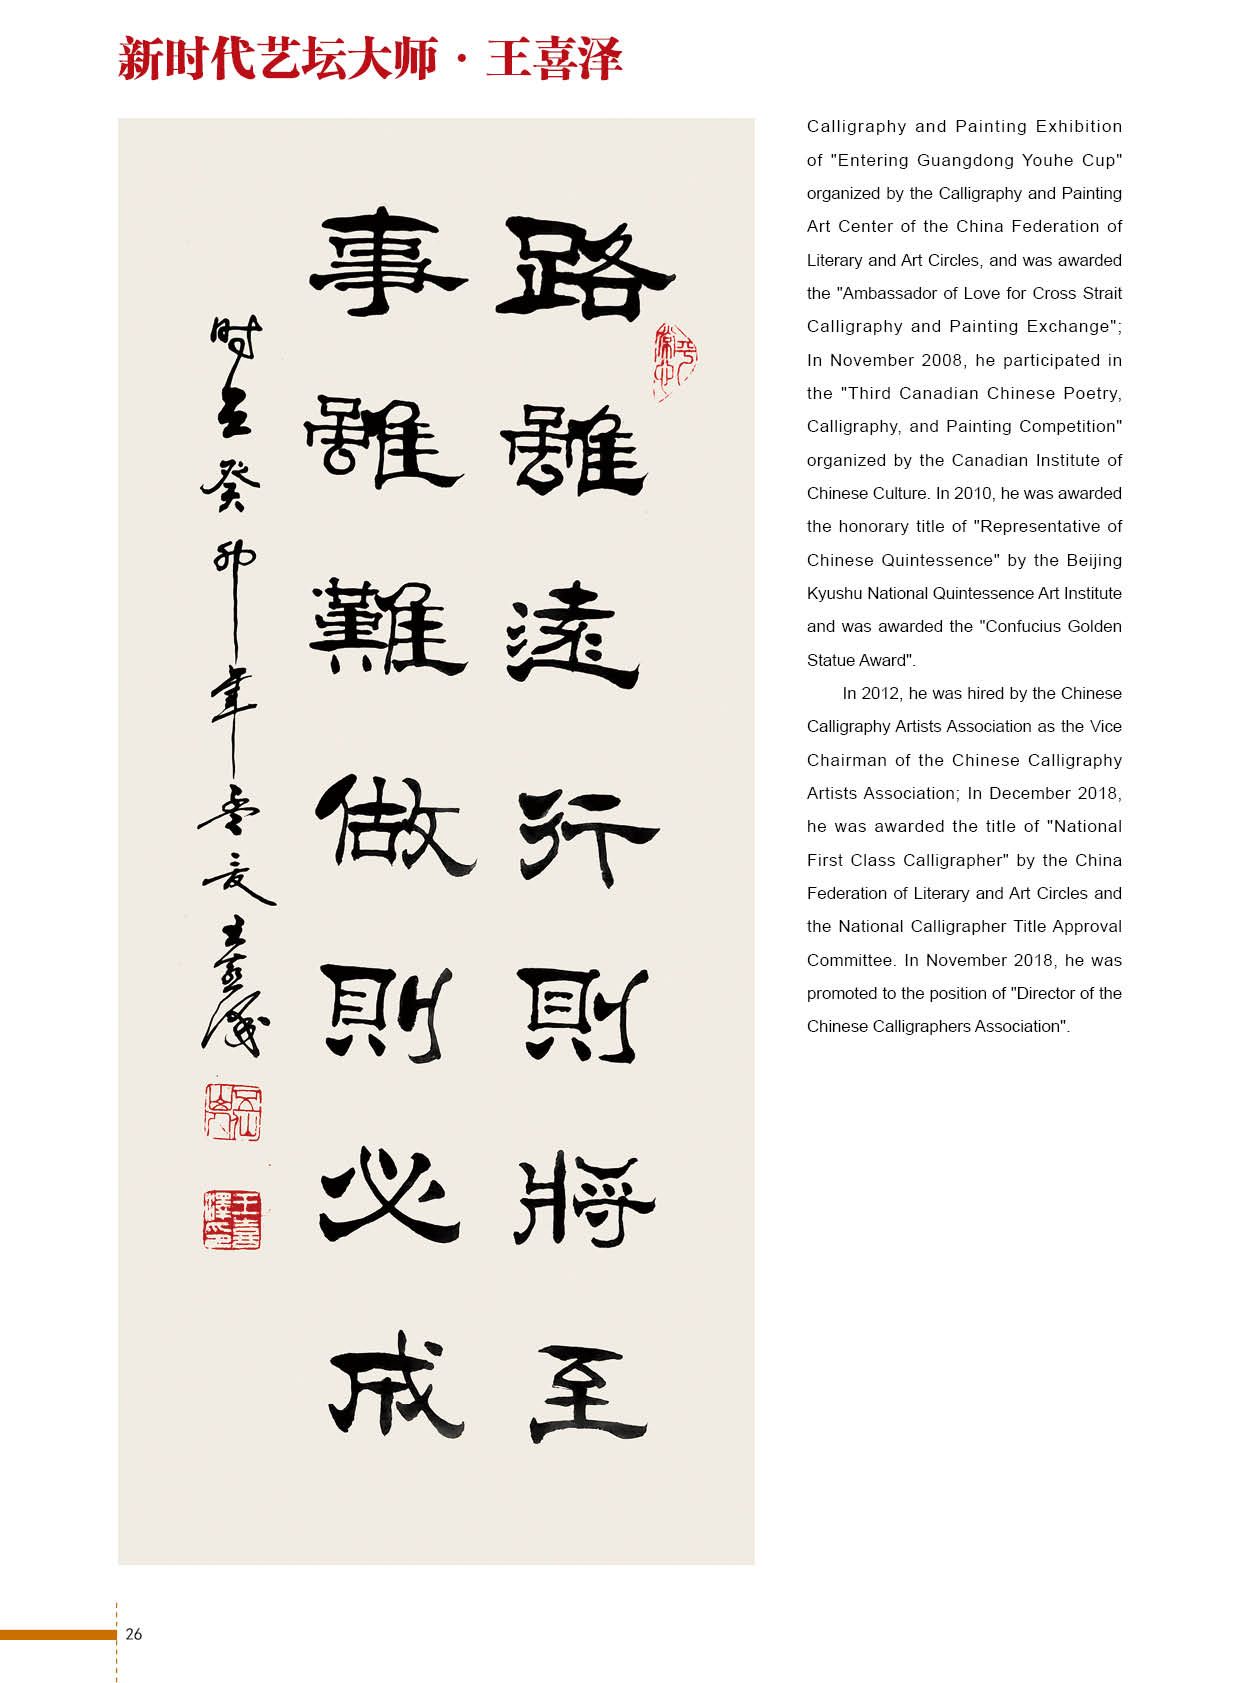 新时代艺坛大师·王喜泽
路雖遠行則將至
事雖難做則必成
时在癸卯年
王喜泽
王喜澤印
Calligraphy and Painting Exhibition
of "Entering Guangdong Youhe Cup"
organized by the Calligraphy and Painting
Art Center of the China Federation of
Literary and Art Circles, and was awarded
the "Ambassador of Love for Cross Strait
Calligraphy and Painting Exchange";
In November 2008, he participated in
the "Third Canadian Chinese Poetry,
Calligraphy, and Painting Competition"
organized by the Canadian Institute of
Chinese Culture. In 2010, he was awarded
the honorary title of "Representative of
Chinese Quintessence" by the Beijing
Kyushu National Quintessence Art Institute
and was awarded the "Confucius Golden
Statue Award".
In 2012, he was hired by the Chinese
Calligraphy Artists Association as the Vice
Chairman of the Chinese Calligraphy
Artists Association; In December 2018,
he was awarded the title of "National
First Class Calligrapher" by the China
Federation of Literary and Art Circles and
the National Calligrapher Title Approval
Committee. In November 2018, he was
promoted to the position of "Director of the
Chinese Calligraphers Association".
26